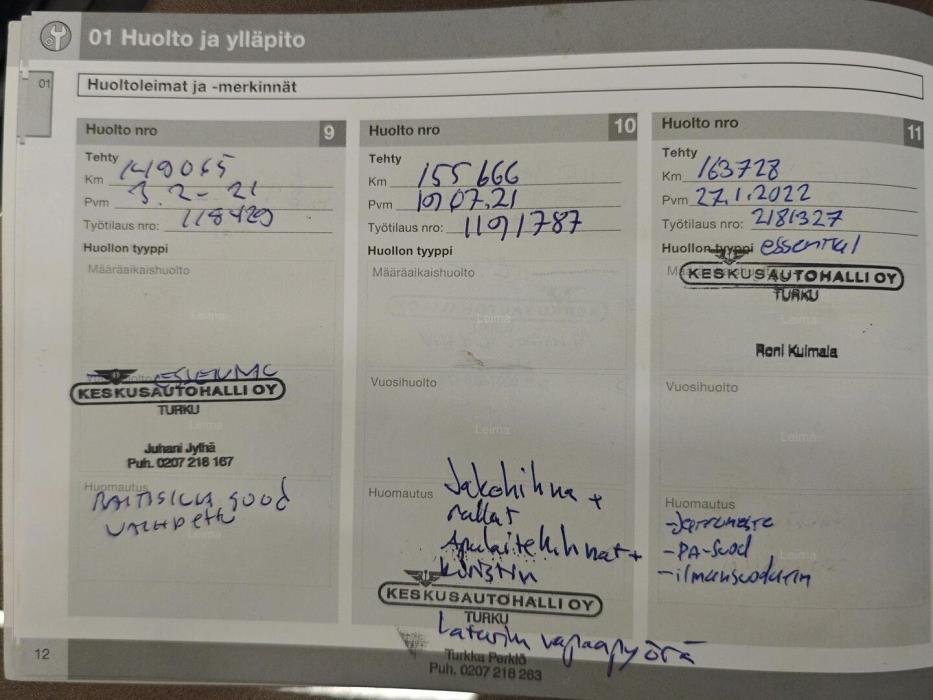 01 Huolto ja ylläpito
01
Huoltoleimat ja -merkinnät
Huolto nro 9
Tehty
Km 149065
Pvm 3.2-21
Työtilaus nro: 118429
Huollon tyyppi
Määräaikaishuolto
Leima
KESKUSAUTOHALLI OY
TURKU
Leima
Juhani Jylhä
Puh. 0207 218 167
Huomautus
Leima
Huolto nro 10
Tehty
Km 155666
Pvm 19 07.21
Työtilaus nro: 1191787
Huollon tyyppi
Määräaikaishuolto
Leima
Vuosihuolto
Leima
Huomautus
Jakohihna +
rullat
Apulaitehihnat +
KESKUSAUTOHALLI OY
TURKU
Laturin vapaapyörä
Turkka Perklö
Puh. 0207 218 263
Huolto nro 11
Tehty
Km 163728
Pvm 27.1.2022
Työtilaus nro: 2181327
Huollon tyyppi essential
KESKUSAUTOHALLI OY
TURKU
Leima
Roni Kulmala
Vuosihuolto
Leima
Huomautus
-Jarruneste
-PA-suod
Leima
-ilmansuodatin
12